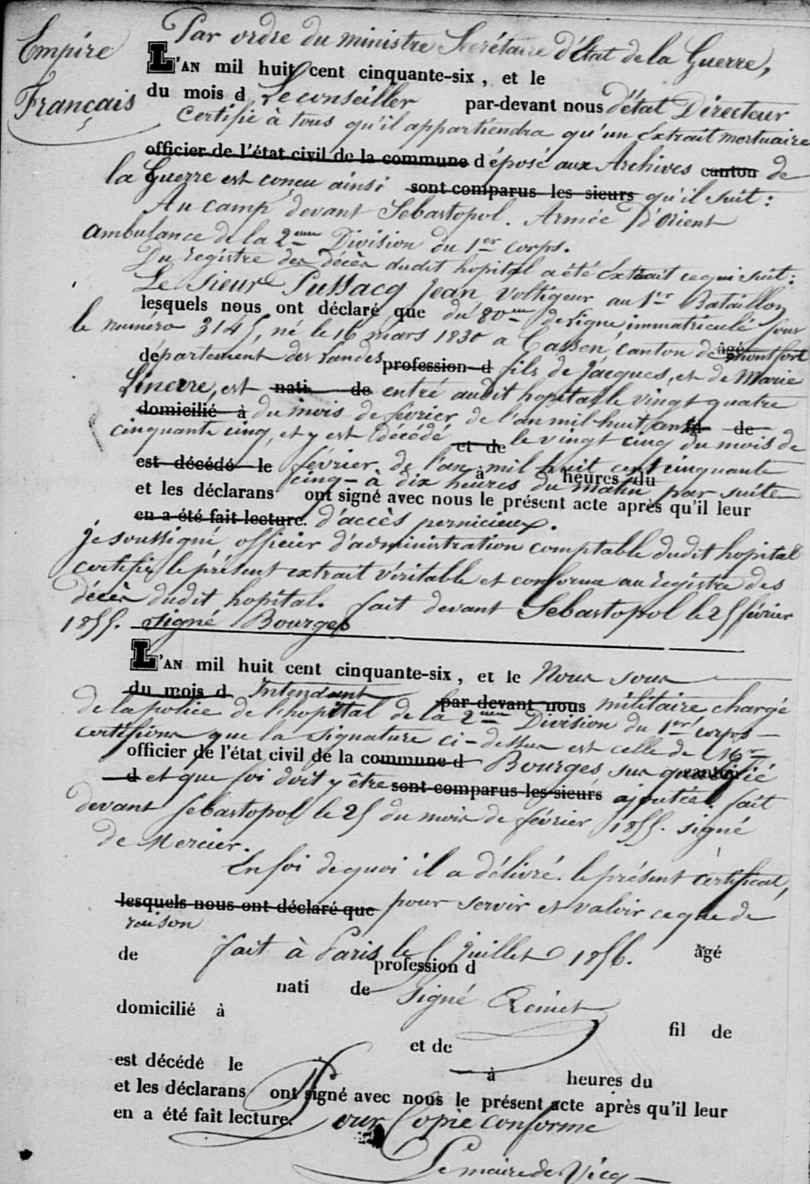 Par ordre du ministre Secrétaire d'État de la Guerre,
Empire
L'AN mil huit cent cinquante-six, et le
Français
du mois d Le conseiller par-devant nous d'état Directeur
Certifie à tous qu'il appartiendra qu'un extrait mortuaire
officier de l'état civil de la commune d éposé aux Archives canton de
la Guerre est conçu ainsi sont comparus les sieurs qu'il suit :
Au camp devant Sébastopol. Armée d'Orient
ambulance de la 2eme Division du 1er corps.
Du registre des décès dudit hopital a été extrait ce qui suit :
Le Sieur Pussacq Jean Voltigeur au 1er Bataillon
lesquels nous ont déclaré que du 80me de ligne immatriculé sous
le numéro 3145, né le 16 mars 1830 a Cassen, canton de âgé montfort
département des Landes profession d fils de Jacques, et de Marie
Linerre, est nati de entré audit hopital le vingt quatre
domicilié à du mois de février de l'an mil huit cent fil de
cinquante cinq, et y est décédé et de le vingt cinq du mois de
est décédé le février de l'an mil huit cent cinquante
cinq à dix heures du matin par suite à heures du
et les déclarans ont signé avec nous le présent acte après qu'il leur
en a été fait lecture. d'accès pernicieux.
je soussigné officier d'administration comptable dudit hopital
certifie le présent extrait véritable et conforme au registre des
décès dudit hopital. fait devant Sebastopol le 25 février
1855. signé Bourges
L'AN mil huit cent cinquante-six, et le Nous sous
du mois d Intendant par-devant nous militaire chargé
de la police de l'hopital de la 2eme Division du 1er corps
certifions que la signature ci-dessus est celle de Mr
officier de l'état civil de la commune d Bourges, sus qualifié canton
d et que foi doit y être sont comparus les sieurs ajoutée. fait
devant Sebastopol le 25 du mois de février 1855. signé
de Mercier.
En foi de quoi il a délivré le présent certificat,
lesquels nous ont déclaré que pour servir et valoir ce que de
raison
de fait à Paris le 5 juillet 1856. âgé
profession d
nati de signé
domicilié à
fil de
et de
est décédé le à heures du
et les déclarans ont signé avec nous le présent acte après qu'il leur
en a été fait lecture. Pour Copie conforme
Le maire de Vicq